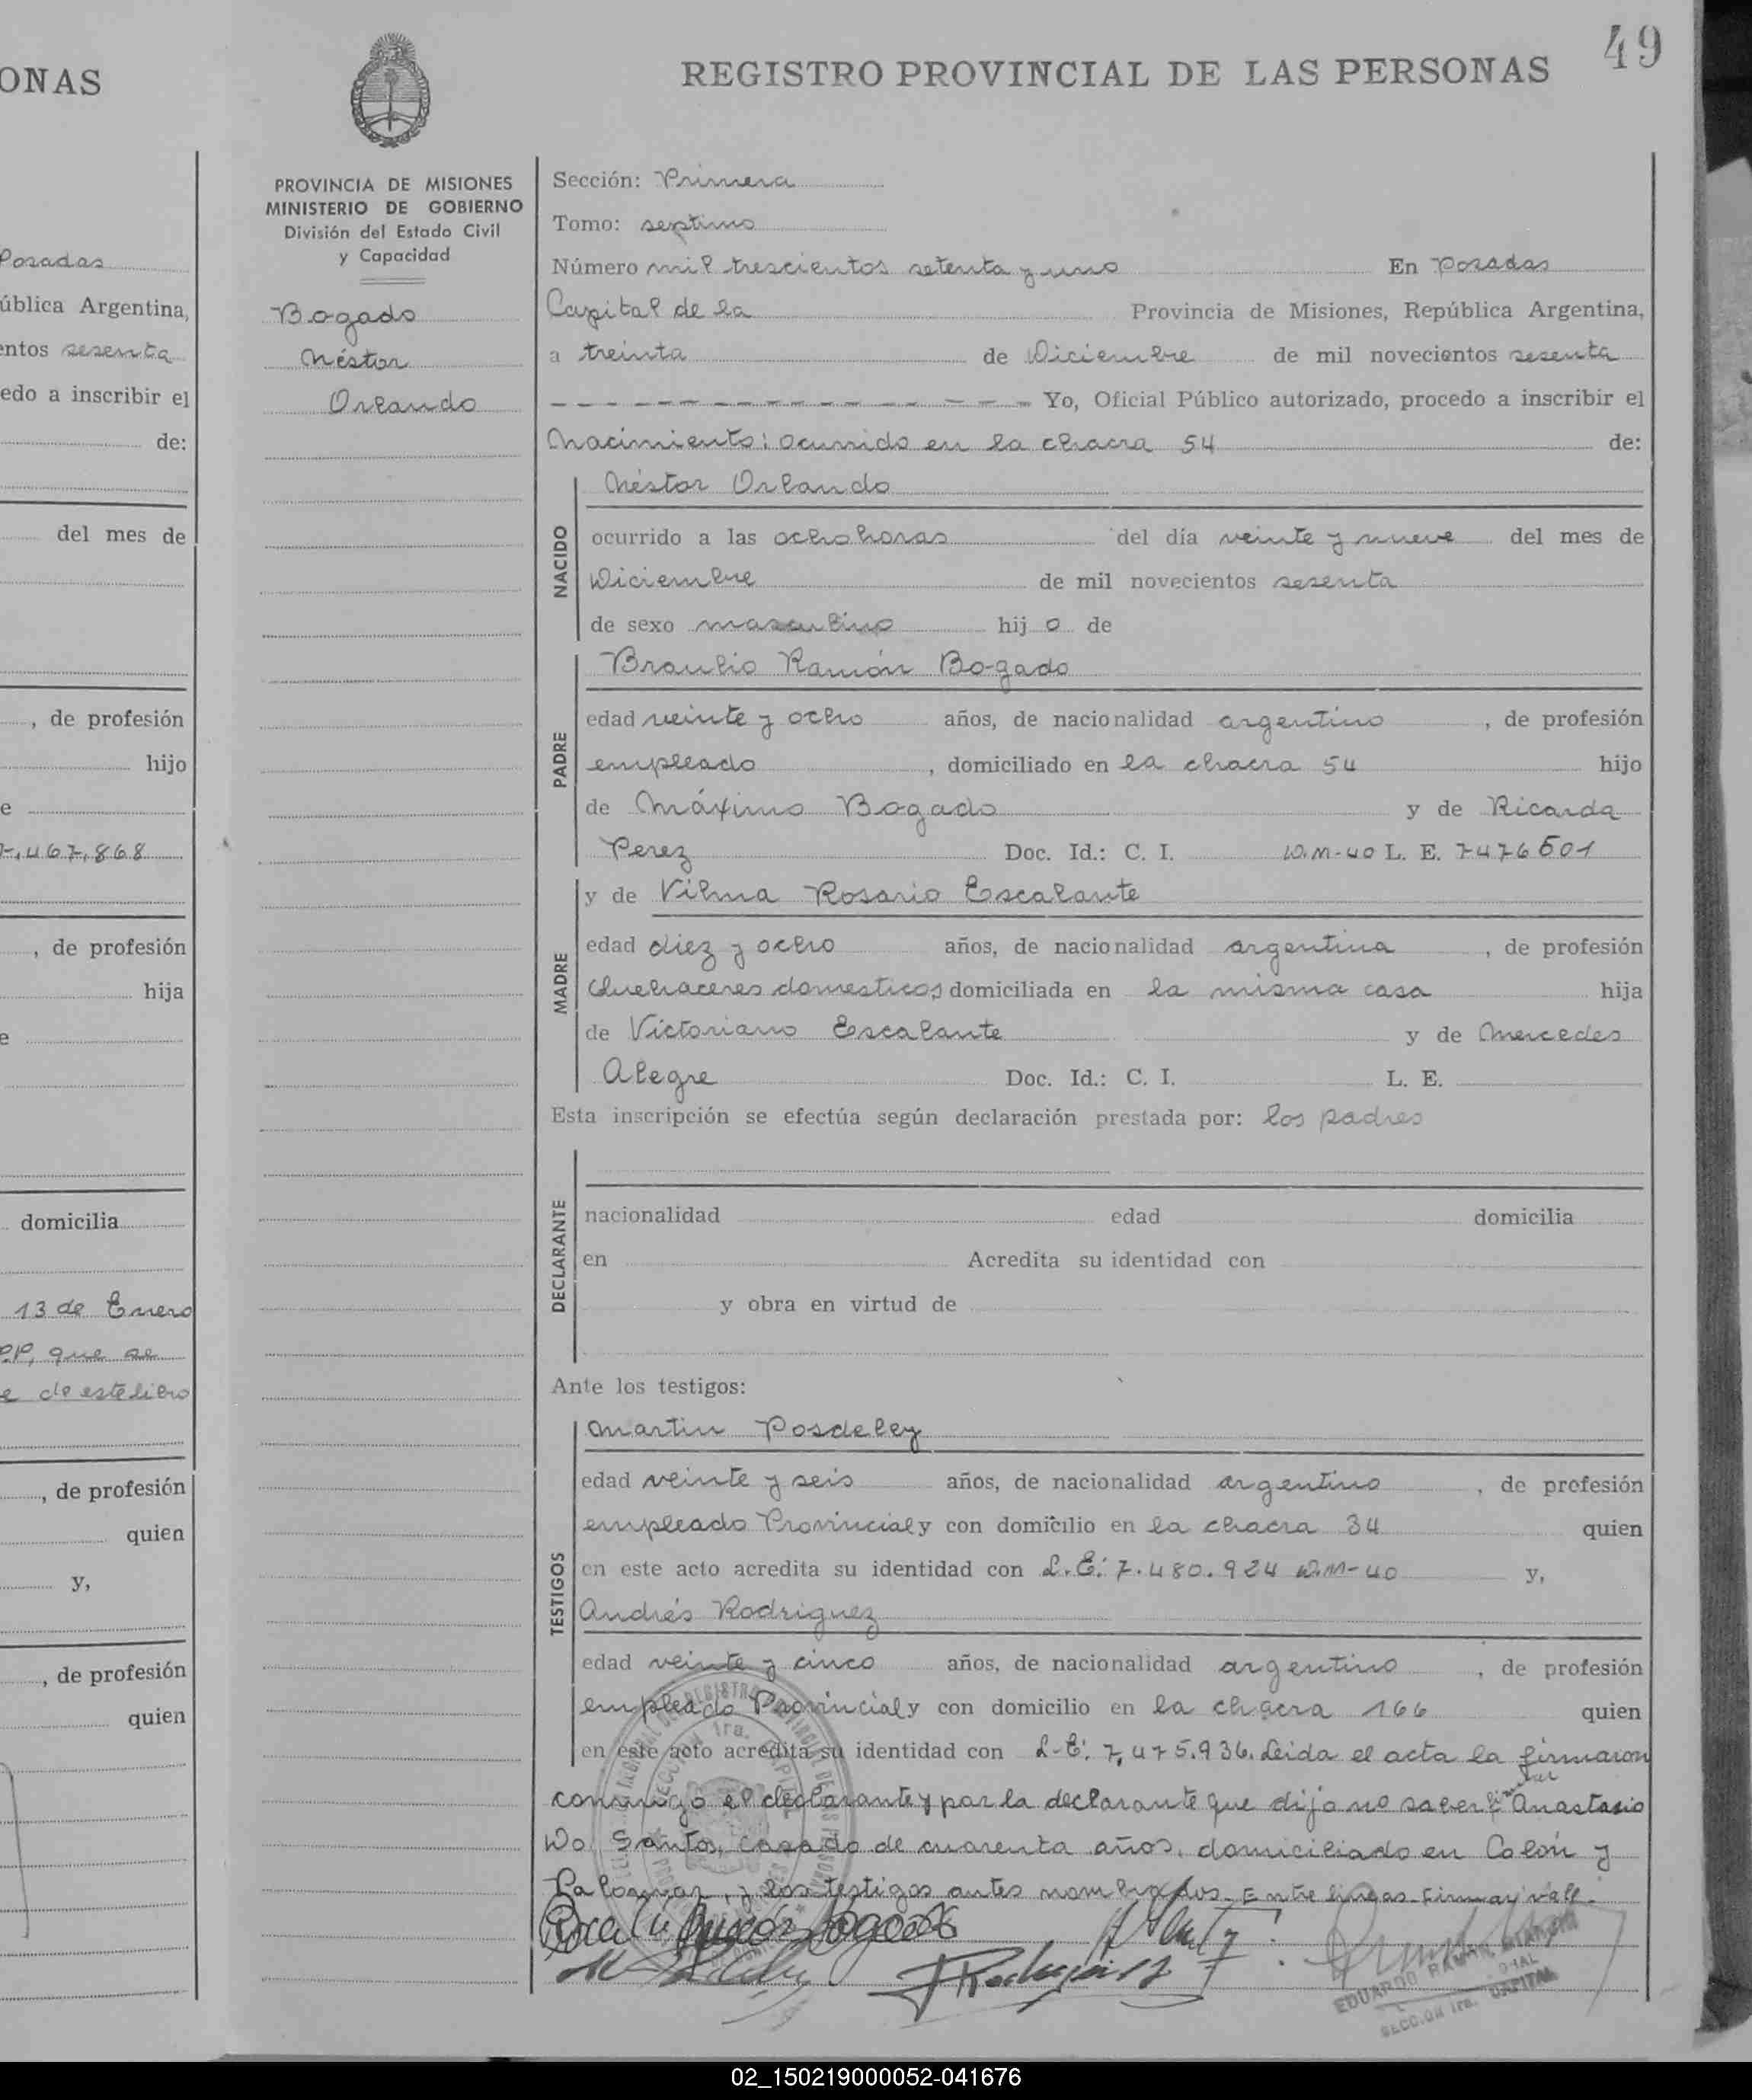 ONAS
Posadas
ública Argentina,
entos sesenta
edo a inscribir el
de:
del mes de
, de profesión
hijo
e
7,467,868
, de profesión
hija
e
domicilia
13 de Enero
que se
e de este libro
, de profesión
quien
y,
, de profesión
quien
49
REGISTRO PROVINCIAL DE LAS PERSONAS
PROVINCIA DE MISIONES
MINISTERIO DE GOBIERNO
División del Estado Civil
y Capacidad
Bogado
Néstor
Orlando
Sección: Primera
Tomo: septimo
Número mil trescientos setenta y uno En Posadas
Capital de la Provincia de Misiones, República Argentina,
a treinta de Diciembre de mil novecientos sesenta
Yo, Oficial Público autorizado, procedo a inscribir el
Nacimiento: ocurrido en la chacra 54 de:
NACIDO
Néstor Orlando
ocurrido a las ocho horas del día veinte y nueve del mes de
Diciembre de mil novecientos sesenta
de sexo masculino hij o de
PADRE
Braulio Ramón Bogado
edad veinte y ocho años, de nacionalidad argentino , de profesión
empleado , domiciliado en la chacra 54 hijo
de Máximo Bogado y de Ricarda
Perez Doc. Id.: C. I. D.M-40 L. E. 7476601
MADRE
y de Vilma Rosario Escalante
edad diez y ocho años, de nacionalidad argentina , de profesión
Quehaceres domesticos domiciliada en la misma casa hija
de Victoriano Escalante y de Mercedes
Alegre Doc. Id.: C. I. L. E.
Esta inscripción se efectúa según declaración prestada por: los padres
DECLARANTE
nacionalidad edad domicilia
en Acredita su identidad con
y obra en virtud de
Ante los testigos:
TESTIGOS
Martin Posdeley
edad veinte y seis años, de nacionalidad argentino , de profesión
empleado Provincial y con domicilio en la chacra 34 quien
en este acto acredita su identidad con L.E: 7.480.924 D.M-40 y,
Andrés Rodriguez
edad veinte y cinco años, de nacionalidad argentino , de profesión
empleado Provincial y con domicilio en la chacra 166 quien
en este acto acredita su identidad con L-E: 7,475.936. Leida el acta la firmaron
conmigo el declarante y por la declarante que dijo no saber firmar Anastasio
Do Santos, casado de cuarenta años, domiciliado en Colón y
y los testigos antes nombrados. Entre lineas-Firmar vale.
EDUARDO RAMON
SECCION 1ra. CAPITAL
02_150219000052-041676